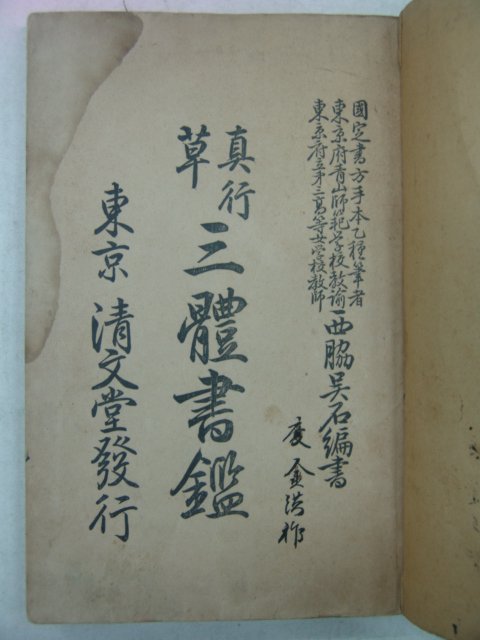 國定書方手本乙種筆者
東京府青山師範学校教諭
東京府立第三高等女学校教師
西脇呉石編書
金洪祚
真行草
三體書鑑
東京 清文堂發行